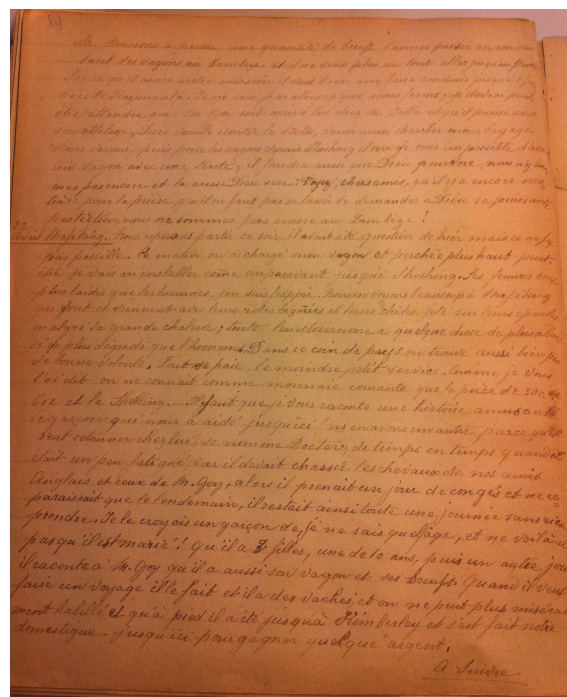 84
Mr. Maissons a perdre une quantité de boeufs l'annee passée en condui
sant des wagons au Zambèze et il ne veux plus du tout aller jusque
Est-ce qu'il aime notre mission il veut bien me faire conduire jusqu'à
de Kazungula. Je ne sais pas alors ce que nous ferons, je devrai peut
être attendre que Mr Goy soit arrivé lui chez M. Jalla et qu'il puisse avec
son attelage, Dieu veuille écarter la Fièvre, venir aussi chercher mon bagage
Nous verrons, puis pour les wagons depuis Shoshong il sera je crois impossible d'avoir
un wagon avec une tente, il faudra aussi que Dieu pourvoie, nous n'y som
mes pas encore et là aussi Dieu sera! Voyez, chers amis, qu'il y a encore ma
tière pour la prière, qu'il ne faut pas se lasser de demander à Dieu sa puissante
protection, nous ne sommes pas encore au Zambèze!
Avril Mafeking. Nous espérons partir ce soir, il avait été question de hier mais ce ne fut
pas possible. Ce matin on a chargé mon wagon et perchée plus haut
je vais m'installer come auparavant jusqu'à Shoshong. Les femmes sont
plus laides que les hommes, j'en suis frappé. Nous en voyons beaucoup à Mafeking
qui vont et viennent avec leurs robes bigarées et leurs châles jeté sur leurs épaules
malgré la grande chaleur; toute leur tournure a quelque chose de plus abai
ré de plus dégradé que l'homme. Dans ce coin de pays on trouve aussi bien peu
de bonne volonté. Tout se paie le moindre petit service. Comme je vous
l'ai dit on ne connait comme monnaie courante que la pièce de 30 c
et le Shelling. — Il faut que je vous raconte une histoire amusante
le garçon qui nous a aidé jusqu'ici (ns en avons un autre parce qu'il
veut retourner chez lui) se nomme Docter, de temps en temps quand il
était un peu fatigué, car il devait chasser les chevaux de nos amis
Anglais et ceux de M. Goy, alors il prenait un jour de congés et ne re-
paraissait que le lendemain, il restait ainsi toute une journée sans rien
prendre. Je le croyais un garçon de, je ne sais quel âge, et ne voilà-il
pas qu'il est marié! qu'il a 3 filles, une de 10 ans, puis un autre jour
il raconte à M. Goy qu'il a aussi son wagon et ses boeufs. Quand il veut
faire un voyage il le fait et il a des vaches, et on ne peut plus miséra
ment habillé et qu'à pied il a été jusqu'à Kimberley et s'est fait notre
domestique jusqu'ici pour gagner quelque argent.
A Suivre